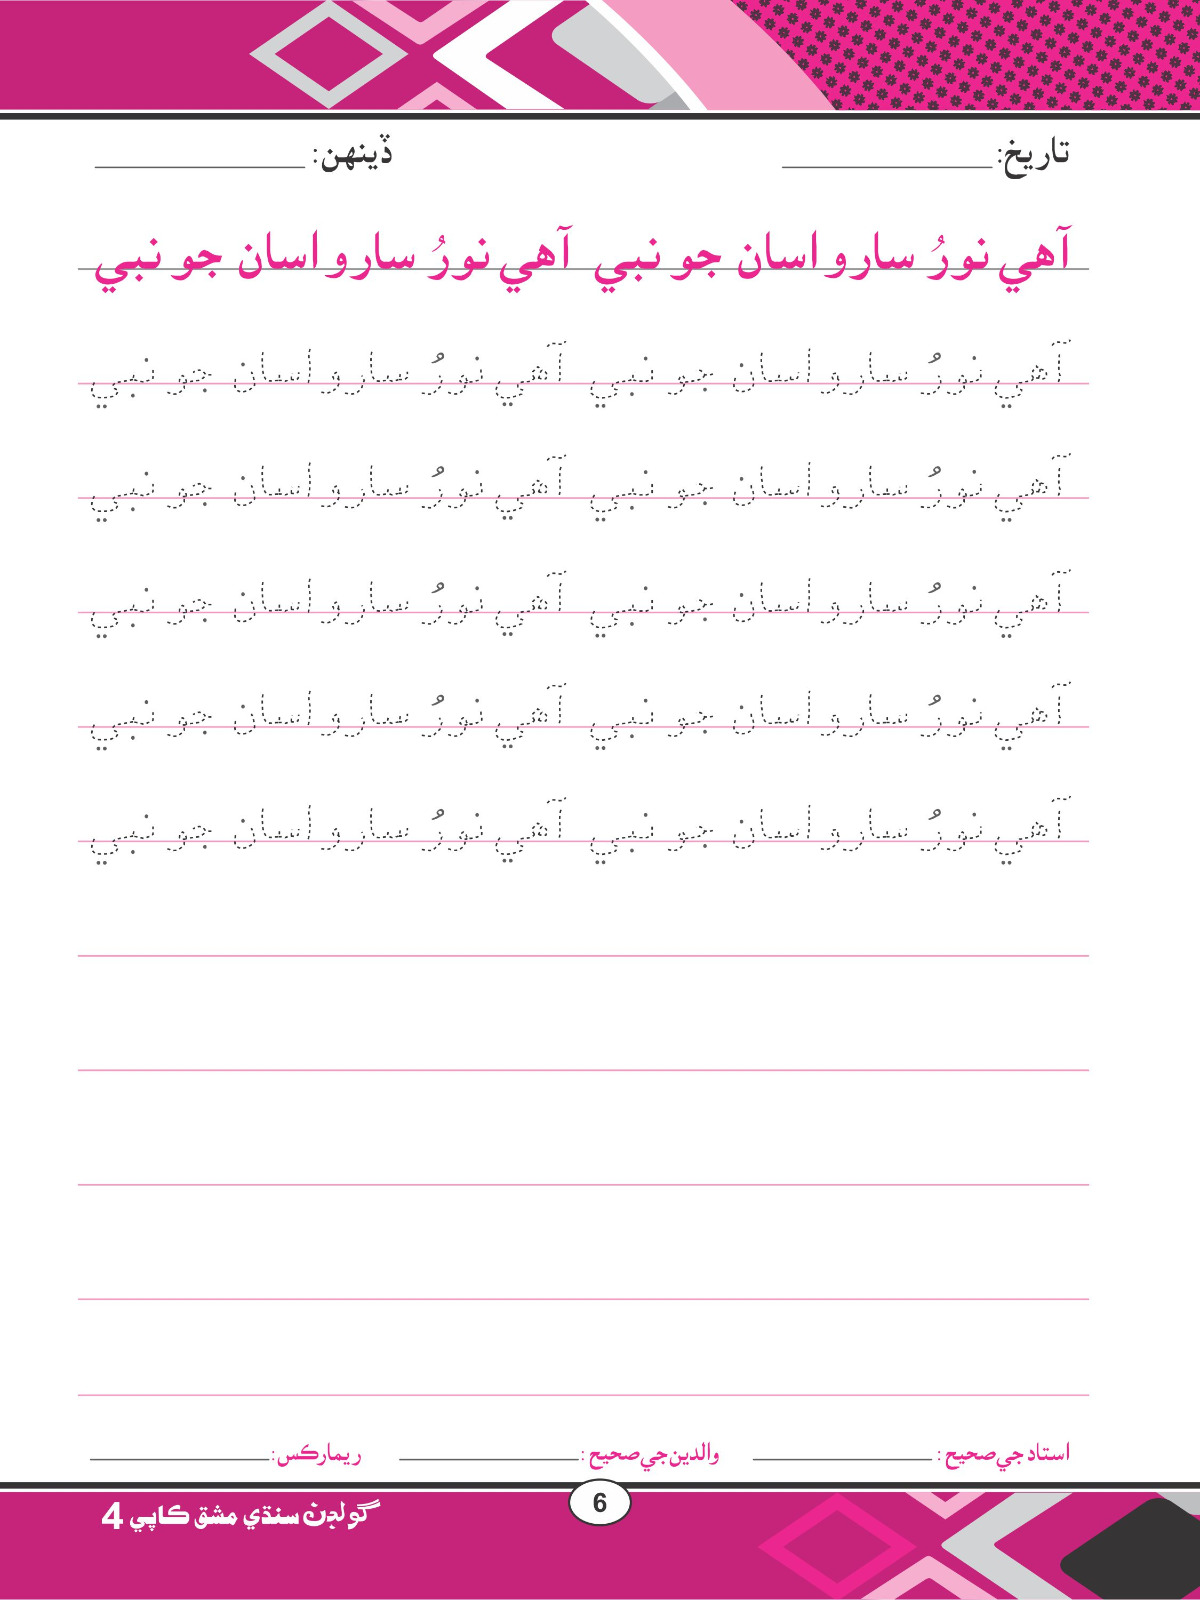 تاريخ: ڏينهن:
آهي نورُ سارو اسان جو نبي آهي نورُ سارو اسان جو نبي
آهي نورُ سارو اسان جو نبي آهي نورُ سارو اسان جو نبي
آهي نورُ سارو اسان جو نبي آهي نورُ سارو اسان جو نبي
آهي نورُ سارو اسان جو نبي آهي نورُ سارو اسان جو نبي
آهي نورُ سارو اسان جو نبي آهي نورُ سارو اسان جو نبي
آهي نورُ سارو اسان جو نبي آهي نورُ سارو اسان جو نبي
استاد جي صحيح: والدين جي صحيح: ريمارڪس:
6
گولڊن سنڌي مشق ڪاپي 4